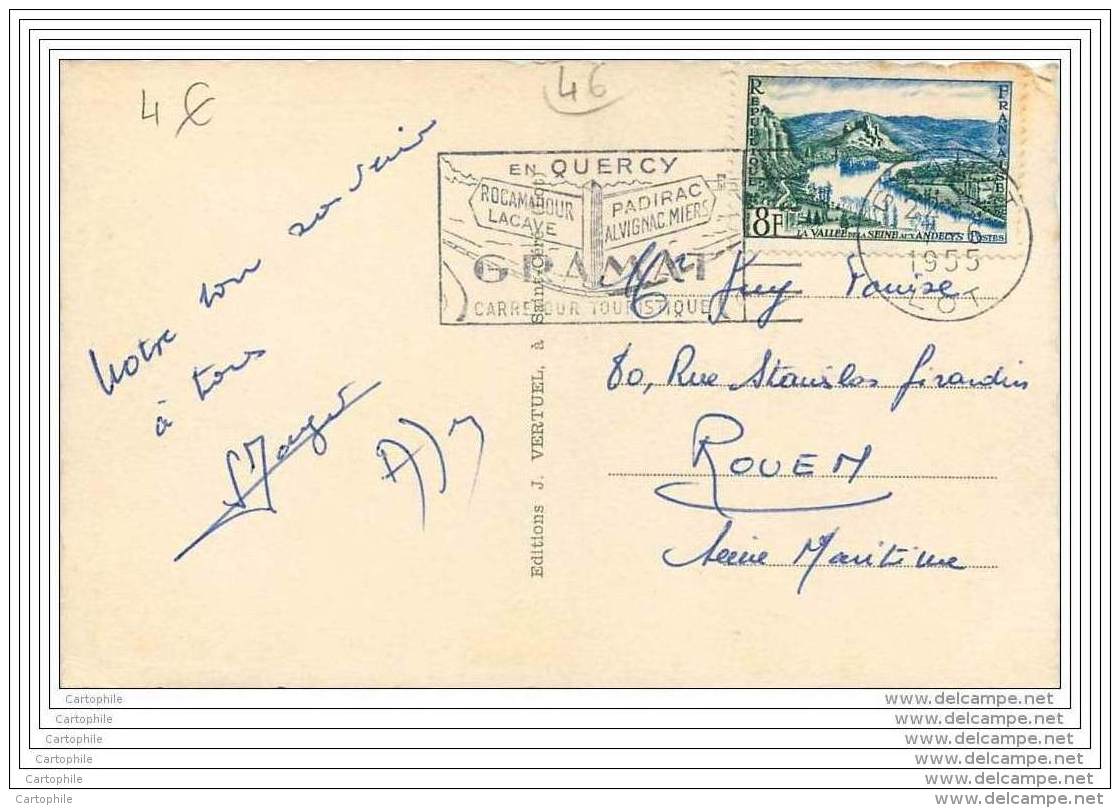 4 €
46
REPUBLIQUE
FRANCAISE
8F
LA VALLEE DE LA SEINE AUX ANDELYS
POSTES
EN QUERCY
ROCAMADOUR
LACAVE
PADIRAC
ALVIGNAC.MIERS
GRAMAT
CARREFOUR TOURISTIQUE
1955
LOT
Notre bon souvenir
à tous
Editions J. VERTUEL, à Saint-Céré (Lot)
Guy
80, Rue Stanislas Girardin
ROUEN
Seine Maritime
Cartophile
Cartophile
Cartophile
Cartophile
Cartophile
Cartophile
www.delcampe.net
www.delcampe.net
www.delcampe.net
www.delcampe.net
www.delcampe.net
www.delcampe.net